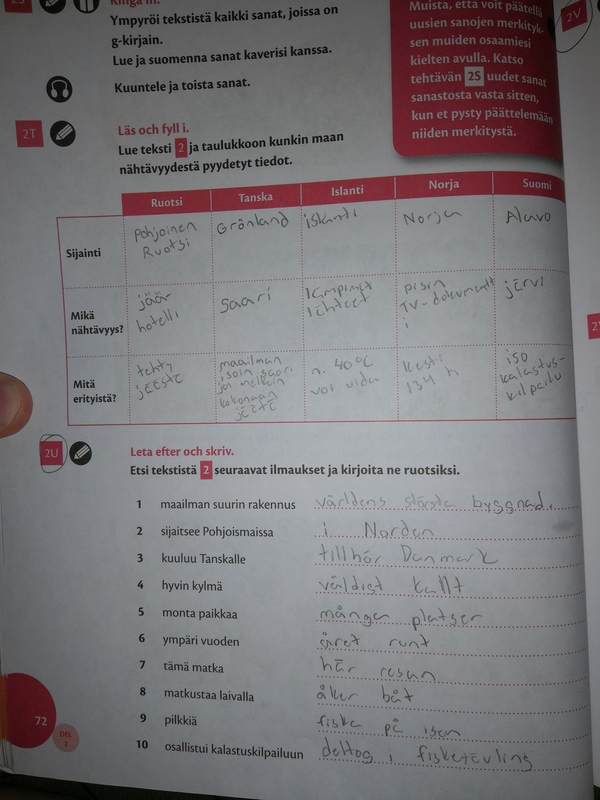 Ympyröi tekstistä kaikki sanat, joissa on
g-kirjain.
Lue ja suomenna sanat kaverisi kanssa.
Kuuntele ja toista sanat.
Muista, että voit päätellä
uusien sanojen merkityk-
sen muiden osaamiesi
kielten avulla. Katso
tehtävän 2S uudet sanat
sanastosta vasta sitten,
kun et pysty päättelemään
niiden merkitystä.
2V
2T
Läs och fyll i.
Lue teksti 2 ja taulukkoon kunkin maan
nähtävyydestä pyydetyt tiedot.
Ruotsi Tanska Islanti Norja Suomi
Sijainti
Pohjoinen
Ruotsi
Grönland
islanti
Norja
Alavo
Mikä
nähtävyys?
jäär
hotelli
saari
lähteet
pisin
TV-dokumentt
i
järvi
Mitä
erityistä?
tehty
jÉÉSTÉ
maailman
isoin saari
ja melkein
kokonaan
jäätä
n. 40°C
voi uida
kesti
134 h
iso
kalastus-
kilpailu
2U
Leta efter och skriv.
Etsi tekstistä 2 seuraavat ilmaukset ja kirjoita ne ruotsiksi.
1 maailman suurin rakennus världens största byggnad.
2 sijaitsee Pohjoismaissa i Norden
3 kuuluu Tanskalle tillhör Danmark
4 hyvin kylmä väldigt kallt
5 monta paikkaa många platser
6 ympäri vuoden året runt
7 tämä matka här resan
8 matkustaa laivalla åker båt
9 pilkkiä fiska på isen
10 osallistui kalastuskilpailuun deltog i fisketävling
72
DEL
2